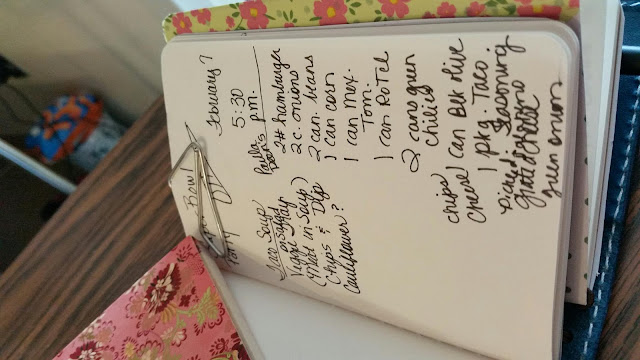 Bowl
Party
February 7
5:30
p.m.
Taco Soup
Veggie Tray
(Meat in Soup)
Chips & Dip
Cauliflower?
Paula
2# hamburger
2 c. onions
2 can beans
1 can corn
1 can mex.
Tom.
1 can RoTel
2 cans green
chilies
1 can Blk olive
1 pkg. Taco
Seasoning
chips
cheese
grated cheese
green onion